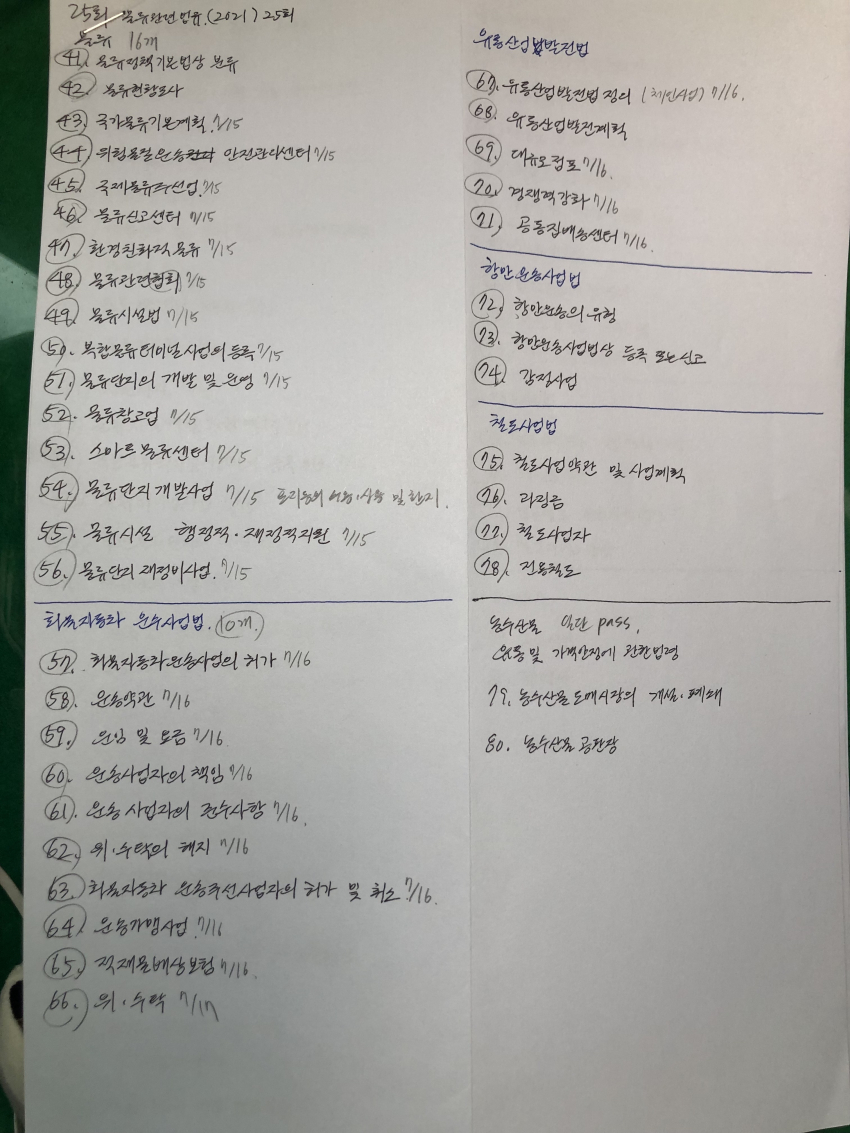 25회 물류관련법규.(2021) 25회
물류 16개
41. 물류정책기본법상 분류
42. 물류현황조사
43. 국가물류기본계획. 7/15
44. 위험물질운송 안전관리센터 7/15
45. 국제물류주선업. 7/15
46. 물류신고센터 7/15
47. 환경친화적 물류 7/15
48. 물류관련협회 7/15
49. 물류시설법 7/15
50. 복합물류터미널사업의 등록 7/15
51. 물류단지의 개발 및 운영 7/15
52. 물류창고업 7/15
53. 스마트물류센터 7/15
54. 물류단지개발사업 7/15 토지등의 수용·사용 및 환지.
55. 물류시설 행정적·재정적지원 7/15
56. 물류단지 재정비사업. 7/15
화물자동차 운수사업법. 10개.
57. 화물자동차운송사업의 허가 7/16
58. 운송약관 7/16
59. 운임 및 요금 7/16.
60. 운송사업자의 책임 7/16
61. 운송 사업자의 준수사항 7/16.
62. 위·수탁의 해지 7/16
63. 화물자동차 운송주선사업자의 허가 및 취소. 7/16.
64. 운송가맹사업 7/16
65. 적재물배상보험 7/16.
66. 위·수탁 7/17
유통산업발전법
67. 유통산업발전법 정의 (체인사업) 7/16.
68. 유통산업발전계획
69. 대규모점포 7/16.
70. 경쟁력강화 7/16
71. 공동집배송센터 7/16.
항만운송사업법
72. 항만운송의 유형
73. 항만운송사업법상 등록 또는 신고
74. 감정사업
철도사업법
75. 철도사업약관 및 사업계획
76. 과징금
77. 철도사업자
78. 전용철도
농수산물 일단 pass.
유통 및 가격안정에 관한법령
79. 농수산물도매시장의 개설·폐쇄
80. 농수산물 공판장